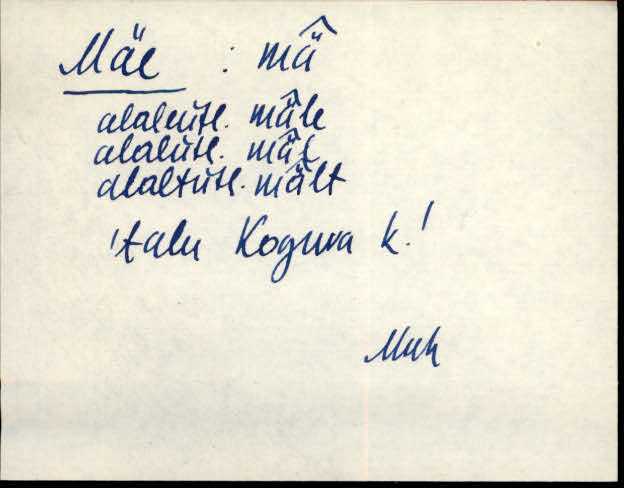 Mäe : mä̂
alaleütl. mä̂le
alalütl. mä̂l
alaltütl. mä̂lt
'talu Koguva k.'
Muh